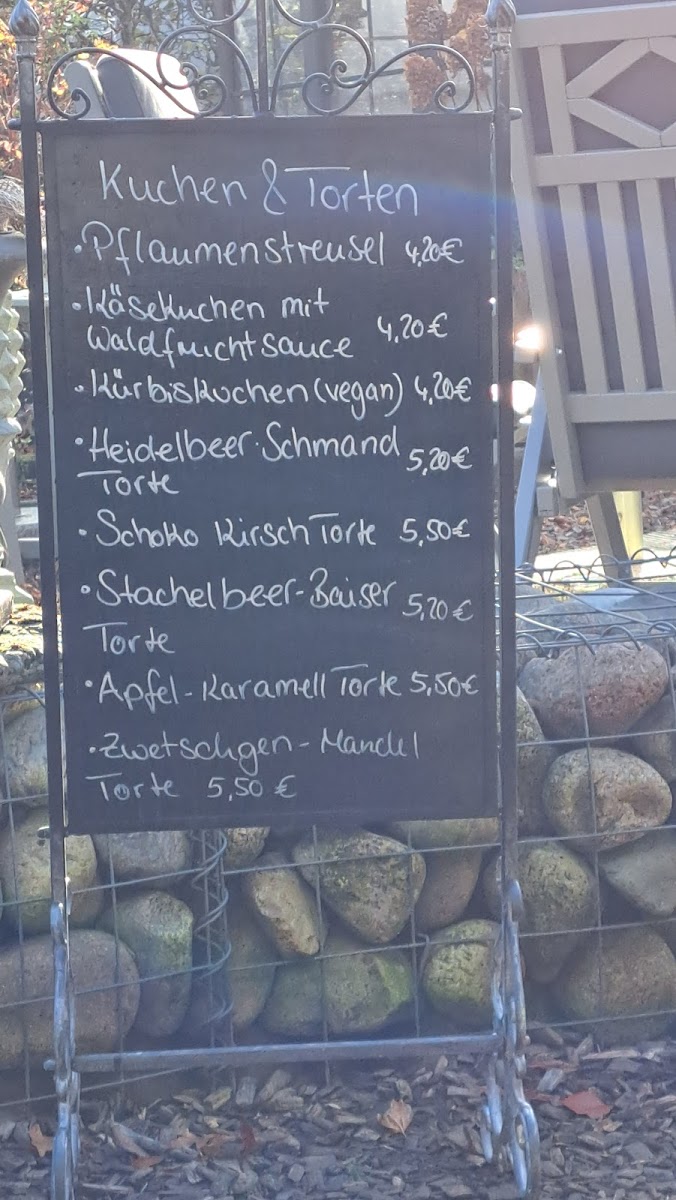 Kuchen & Torten
• Pflaumenstreusel 4,20€
• Käsekuchen mit
Waldfruchtsauce 4,20€
• Kürbiskuchen (vegan) 4,20€
• Heidelbeer-Schmand 5,20€
Torte
• Schoko Kirsch Torte 5,50€
• Stachelbeer-Baiser 5,20€
Torte
• Apfel-Karamell Torte 5,50€
• Zwetschgen-Mandel
Torte 5,50 €